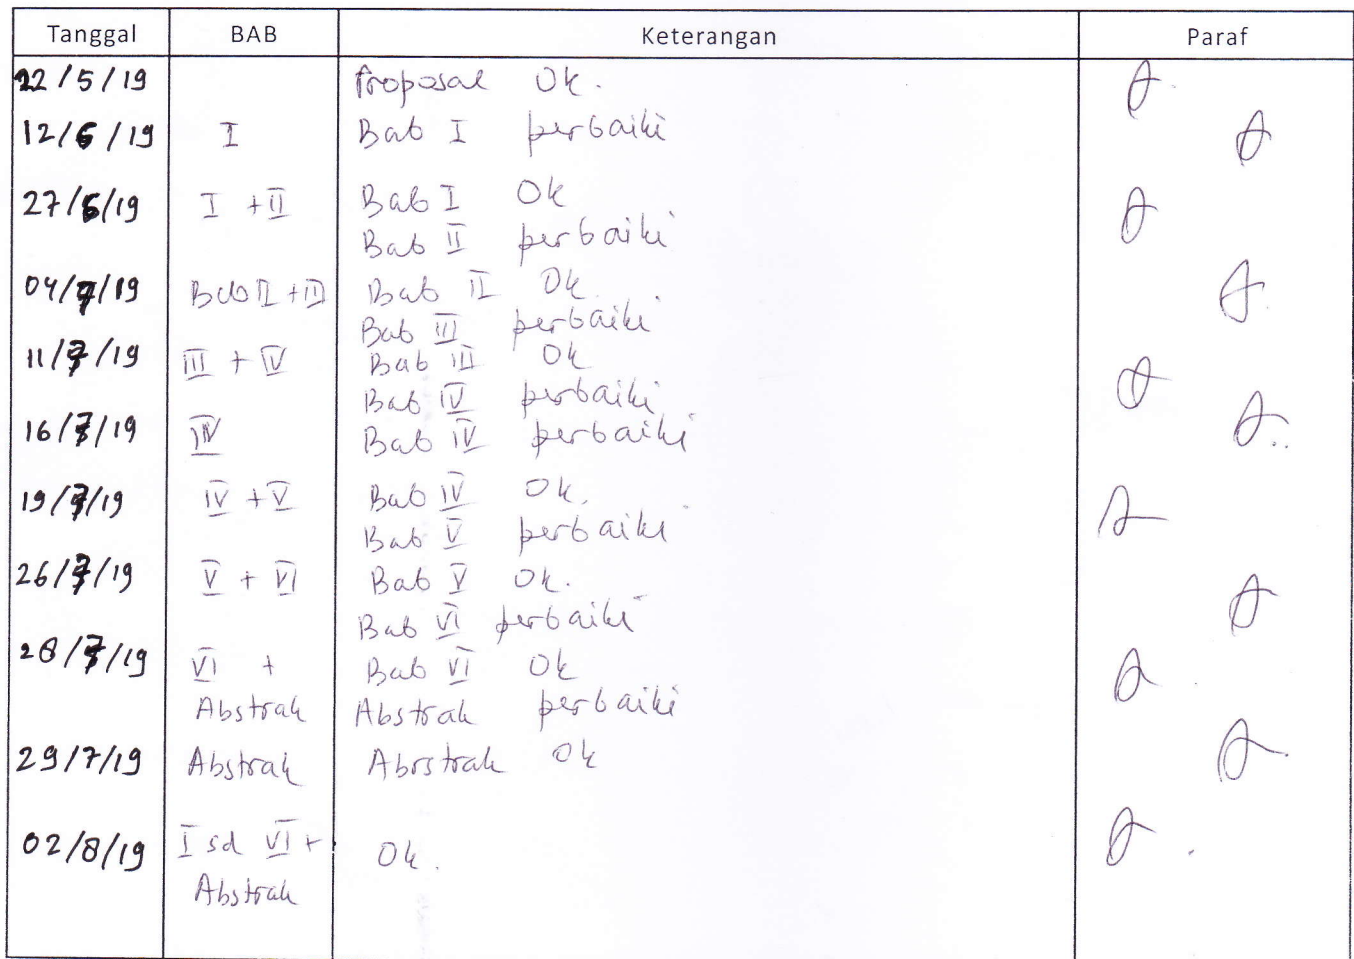 Tanggal BAB Keterangan Paraf
22/5/19 Proposal Ok.
12/6/19 I Bab I perbaiki
27/6/19 I + II Bab I Ok
Bab II perbaiki
04/7/19 Bab II + III Bab II Ok
Bab III perbaiki
11/7/19 III + IV Bab III Ok
Bab IV perbaiki
16/7/19 IV Bab IV perbaiki
19/7/19 IV + V Bab IV Ok.
Bab V perbaiki
26/7/19 V + VI Bab V Ok.
Bab VI perbaiki
28/7/19 VI + Bab VI Ok
Abstrak Abstrak perbaiki
29/7/19 Abstrak Abrstrak Ok
02/8/19 I sd VI + Ok.
Abstrak